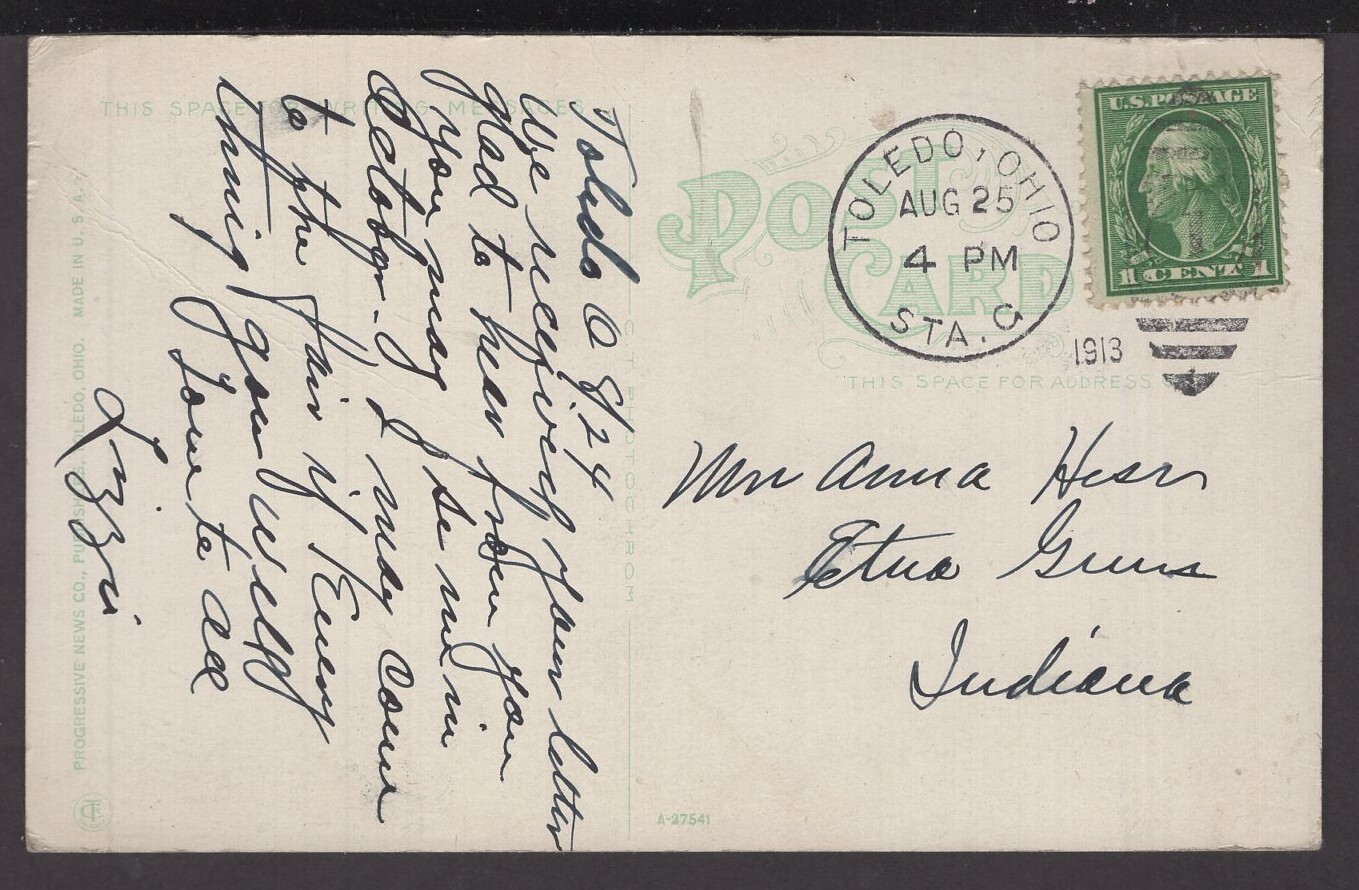 THIS SPACE FOR WRITING MESSAGES
Toledo O 8/24
We received your letter
glad to hear from you
you may se me in
October. I may come
to the fair if Every
thing goes well
Love to all
Lizzie
PROGRESSIVE NEWS CO., PUBLISHERS, TOLEDO, OHIO. MADE IN U. S. A.
C. T. PHOTOCHROM
POST CARD
TOLEDO, OHIO
AUG 25
4 PM
STA. C
1913
U.S. POSTAGE
1 CENT 1
THIS SPACE FOR ADDRESS
Mrs Anna
Etna Green
Indiana
A-27541